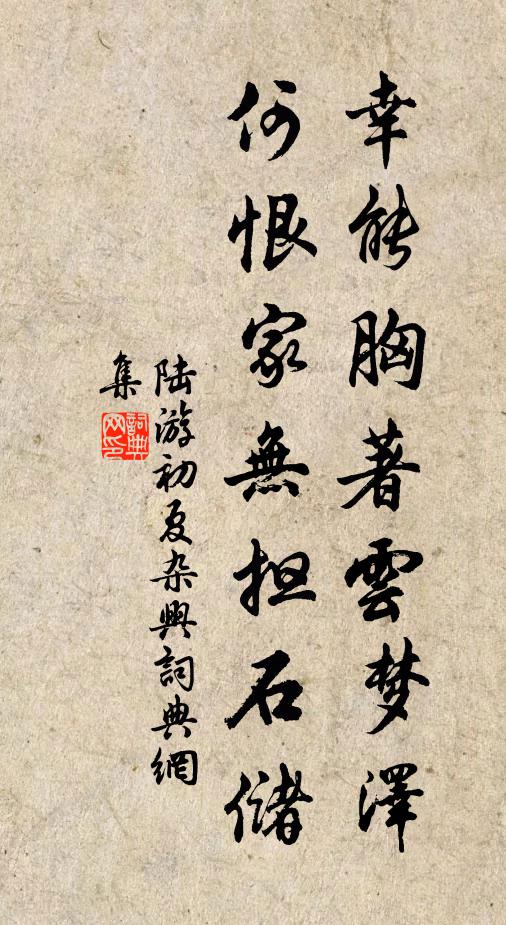 幸能胸著雲梦澤
何恨家無担石儲
陆游初夏杂興詞典網
集
詞典网印